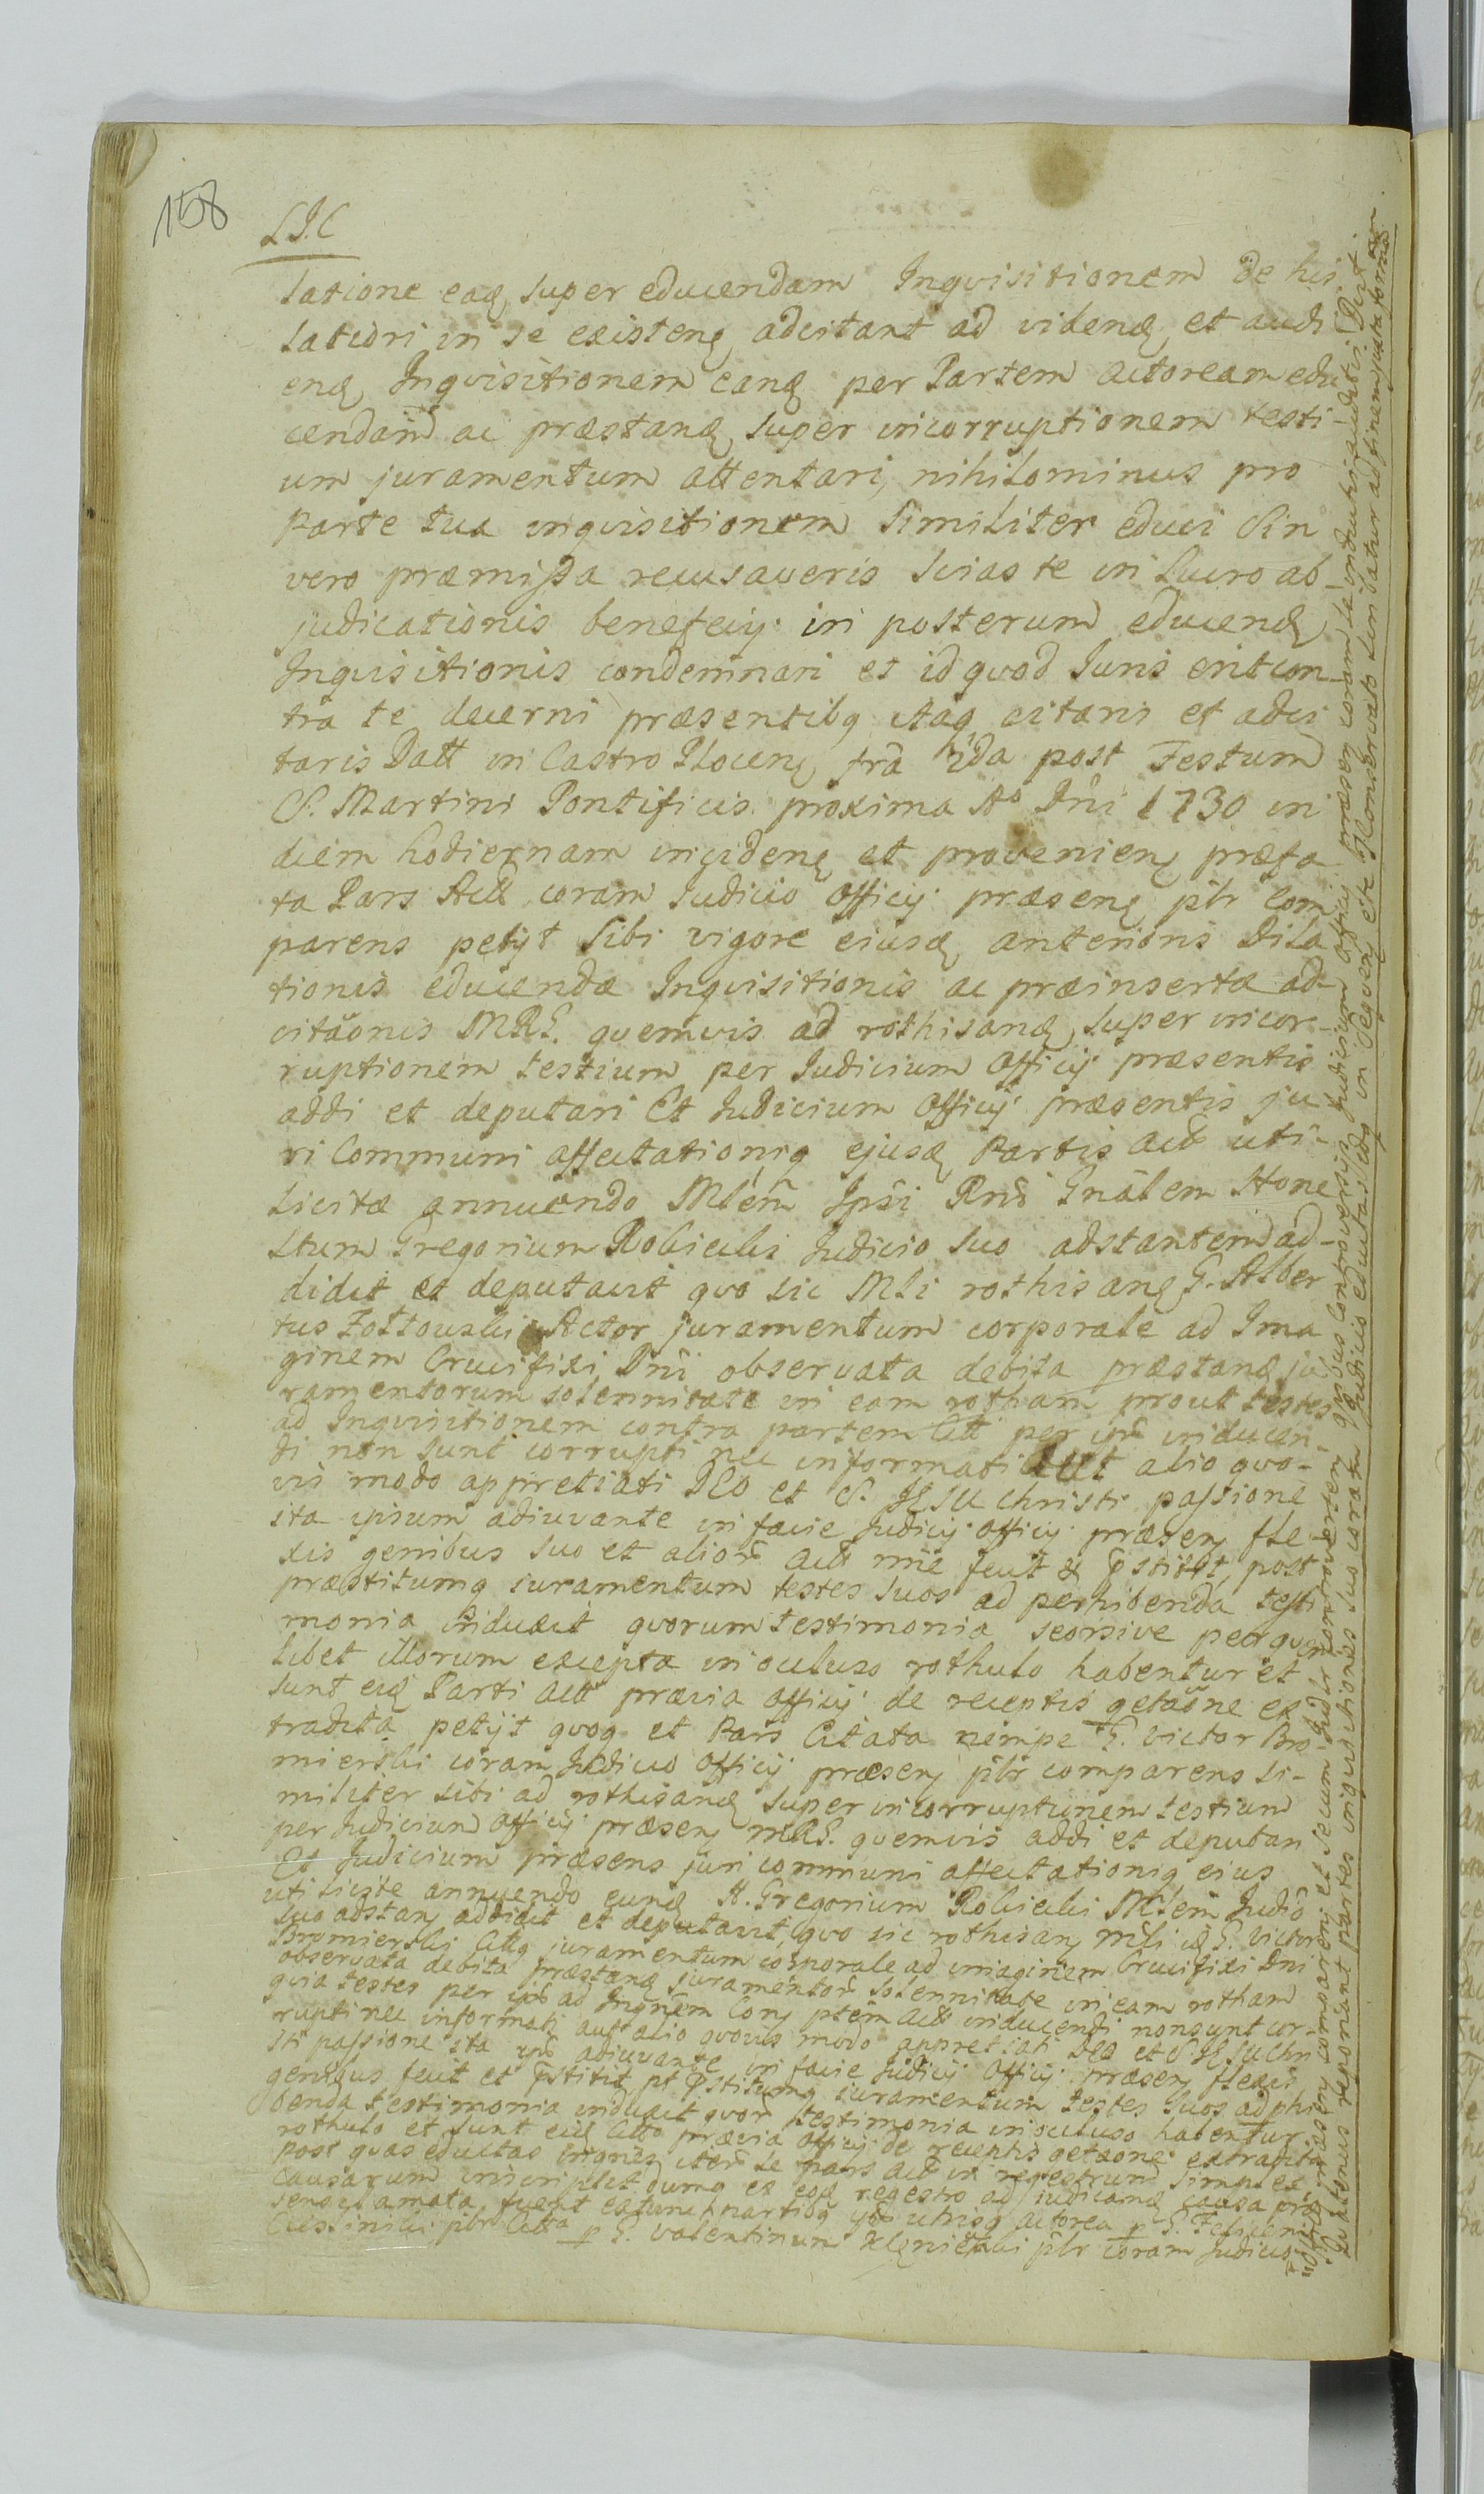 158
L.I.C
latione eaq super educendam Inqvisitionem de his
latiori in se existenq adcitant ad videnq et audi
enq Inqvisitionem eanq per Partem actoream edu
cendam ac præstanq super incorruptionem testi-
um juramentum attentari, nihilominus pro
Parte tua inqvisitionem similiter educi Sin
vero præmissa recusaveris scias te in lucro ab-
judicationis beneficij in posterum educenq
Inqvisitionis condemnari et id qvod Juris erit con-
tra te decerni præsentibq itaq citaris et adci
taris Datt in Castro Plocenq fra 2da post Festum
S. Martini Pontificis proxima Ao Dni 1730 in
diem hodiernam incidenq et provenienq præfa
ta Pars Act coram Judicio Officij præsenq plr com
parens petijt Sibi vigore eiusq anterioris Dila
tionis educendæ Inqvisitionis ac præinsertæ ad-
citaonis MRG. qvemvis ad rothisanq super incor-
ruptionem testium per Judicium Officij præsentis
addi et deputari Et Judicium Officij præsentis ju
ri Communi affectationiq ejusq Partis act uti-
licitæ annuendo Mlem Ipsi Rni Gnalem Hone
stum Gregorium Robicki Judicio suo adstantem ad-
didit et deputavit qvo sic Mli rothisanq G. Alber
tus Zottowski Actor juramentum corporale ad Ima
ginem Crucifixi Dni observata debita præstanq ju
ramentorum solennitate in eam rotham prout testes
ad Inqvisitionem contra partem Ctt per ipm inducen-
di non sunt corrupti nec informati aut alio qvo-
vis modo appretiati DEO et S. JESU Christi passione
ita ipsum adiuvante in facie Judicij Officij præsenq fle-
xis genibus suo et alior act nne fecit & pstitit, post
præstitumq juramentum testes suos ad perhibenda testi
monia induxit qvorum testimonia seorsive per qvem
libet illorum excepta in ocluso rothulo habentur et
sunt eiq Parti act prævia Officij de receptis qetaone ex
tradita petijt qvoq et Pars Citata nempe G. Victor Bro-
mierski coram Judicio Officij præsenq plr comparens si-
militer sibi ad rothisanq super incorruptionem testium
per Judicium Officij præsenq MRG. qvemvis addi et deputari
Et Judicium præsens juri communi affectationiq eius
uti licitæ annuendo eunq H. Gregorium Robicki Mlem Judio
suo adstanq addidit et deputavit, qvo sic rothisanq Mli iq G. Victor
Bromierski Cttq juramentum corporale ad imaginem Crucifixi Dni
observata debita præstanq juramentor solennitate in eam rotham
qvia testes per ipm ad Inqnem Conq ptem act inducendi non sunt cor-
rupti nec informati aut alio qvovis modo appretiati DEO et S. JESU Chri
sti passione ita ipm adiuvante in facie Judicij Officij præsenq flexis
genibus fecit et pstitit pt pstitumq juramentum testes suos ad phi
benda testimonia induxit qvor testimonia in ocluso habentur
rothulo et sunt eiq Ctto prævia Officij de receptis qetaone extradita
post qvas eductas inqnes iter se pars act in regestrum simplex
causarum inscripsit dumq ex eoq regestro ad iudicanq causa præ
sens clamata fuerit extunc partibq ipis utrisq actorea p G. Felicem
Ciessinski plr Ctta p G. Valentinum Klęnietski plr coram Judicio
Officij præsenq comparenq et secum Judlr controvertenq qvibus controversijs Judicium Officij præsenq coram se inductis auditis Dict.
Qvatenus reponant partes inqvisitiones suo coram Judicio eductas ado in seqvenq et te qlonservato sentiatur ad finem juxta formam